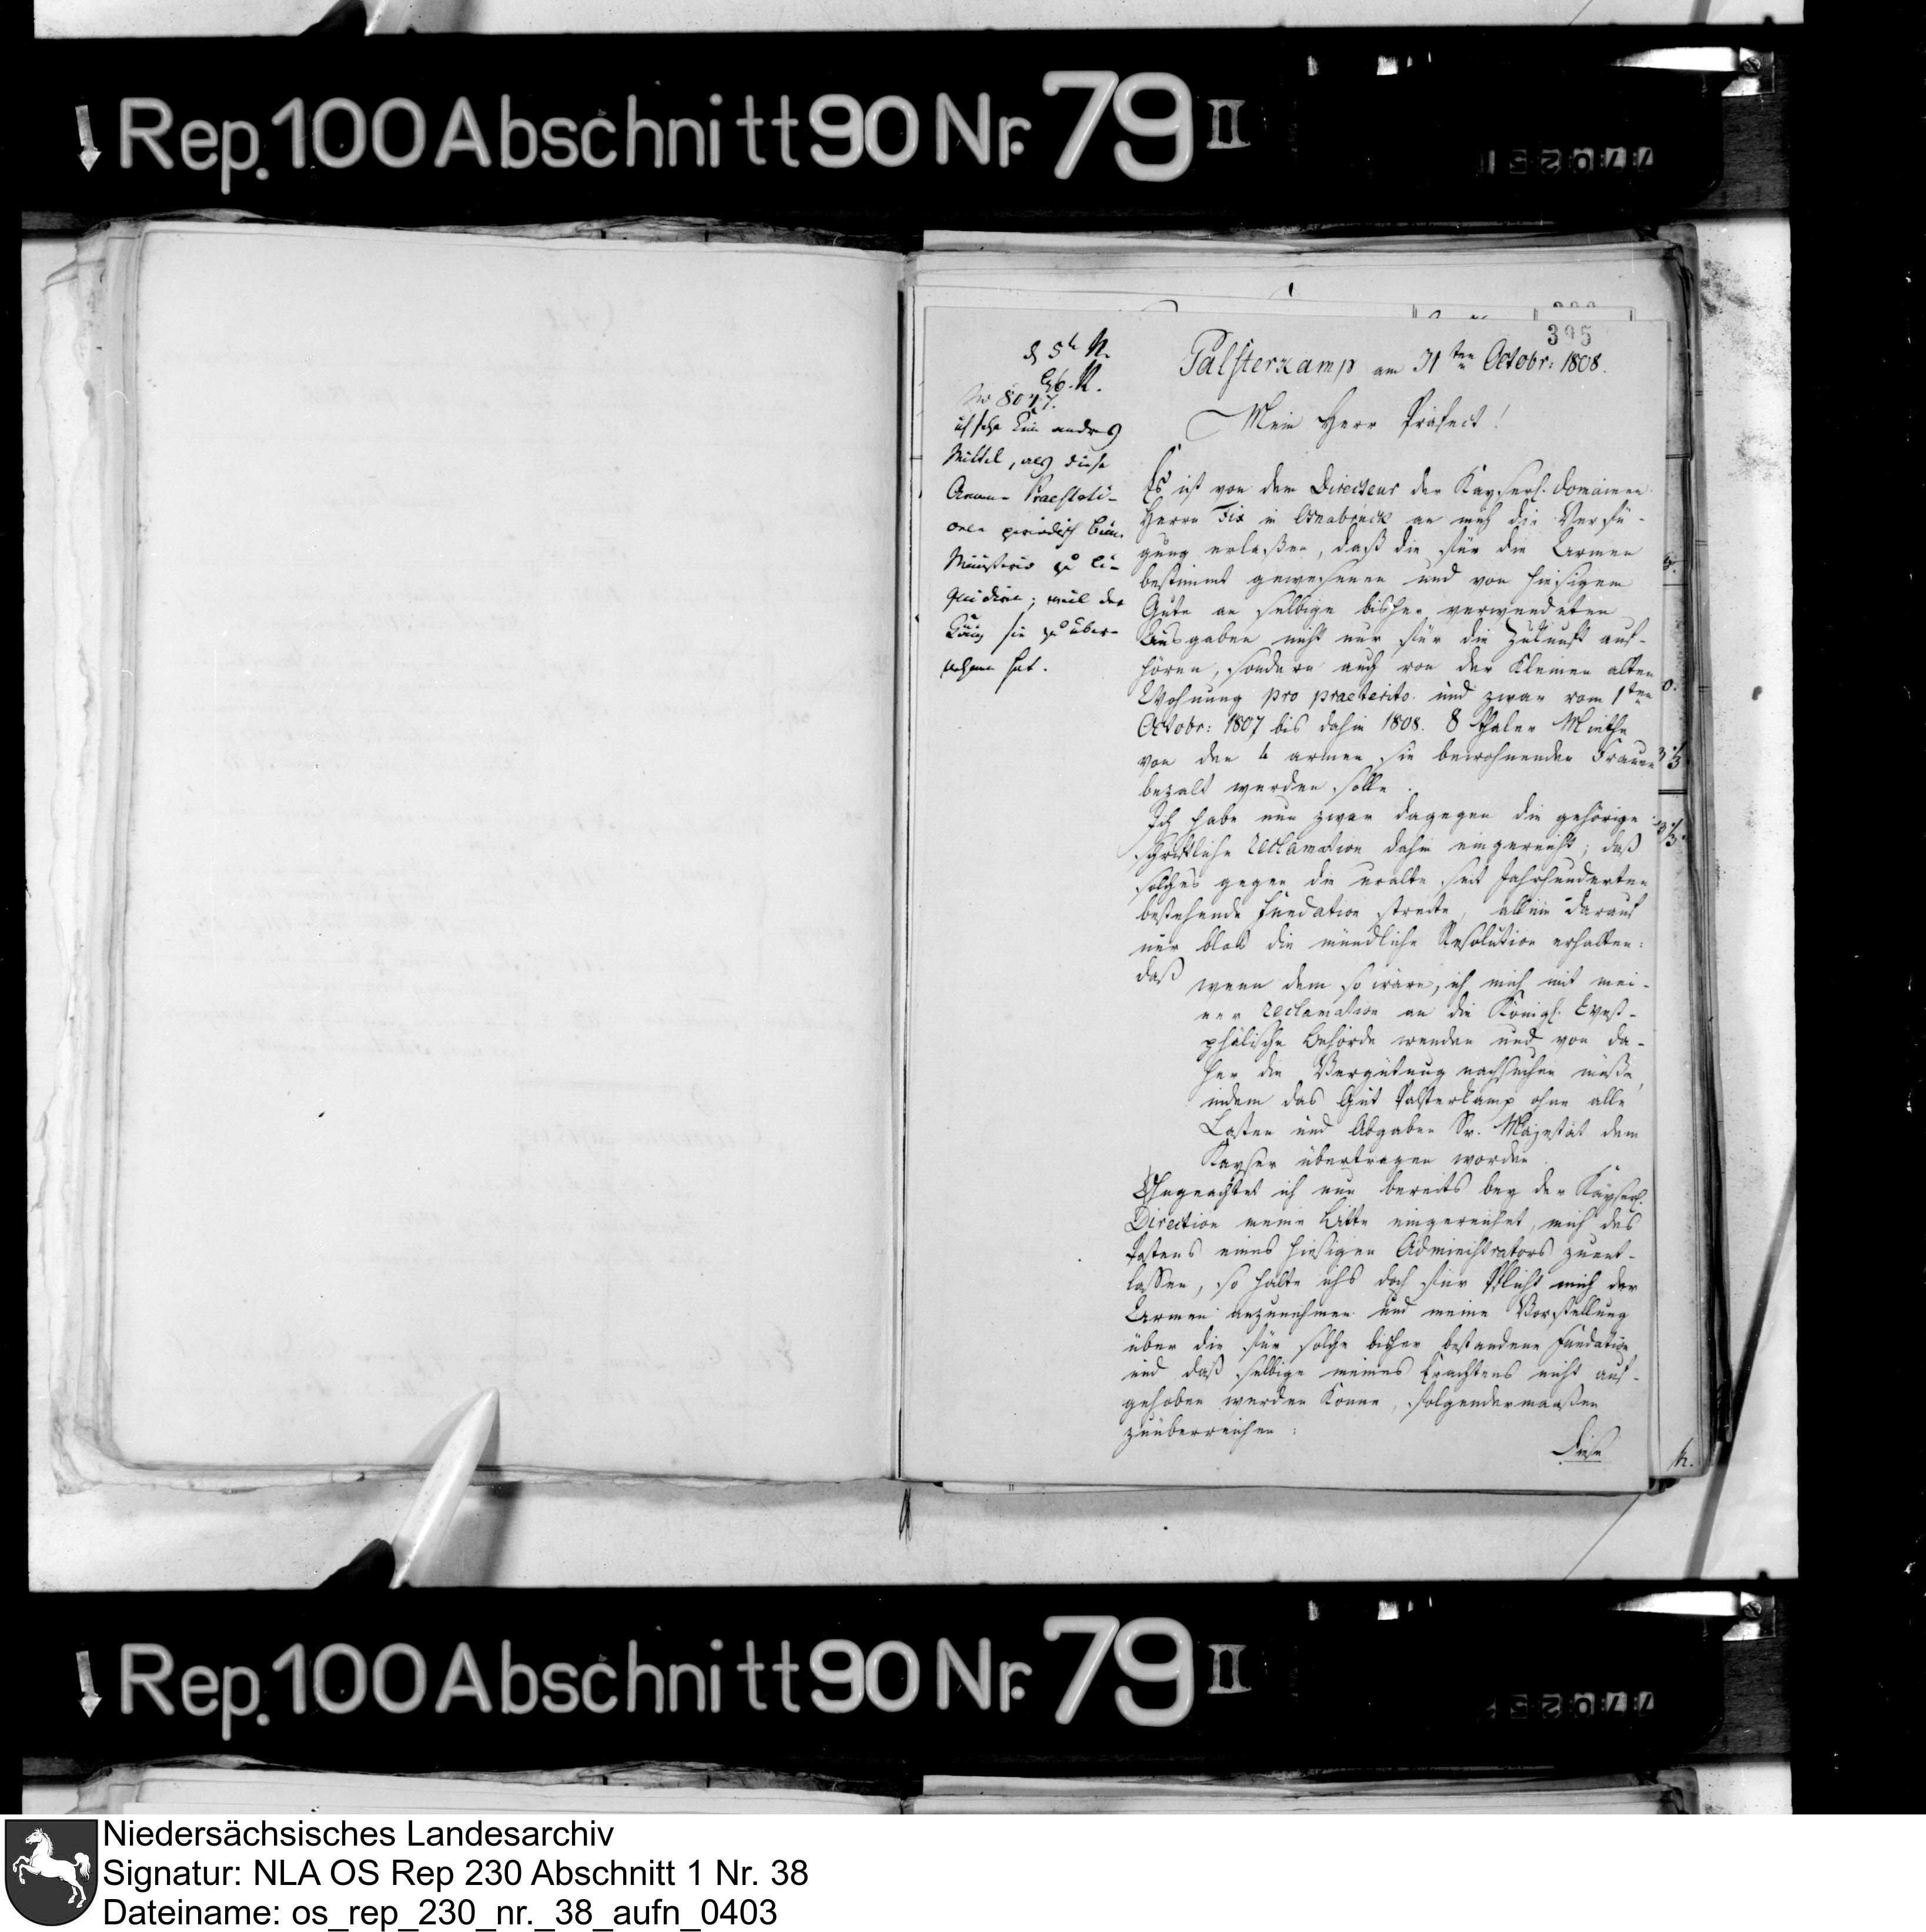 Rep. 100 Abschnitt 90 Nr. 79 II
77025
395
Palsterkamp am 31ten Octobr: 1808.
Mein Herr Präfect!
No 8047.
ich sehe kein andres
Mittel, als diese
Armen Praestati-
onen periodisch beim
Ministerio zu li-
quidiren; weil der
König sie zu über-
nehmen hat.
Es ist von dem Directeur der Kayserl. domainen
Herrn Fix in Osnabrück an mich die Verfü-
gung erlaßen, daß die für die Armen
bestimmt gewesenen und von hiesigem
Gute an selbige bisher verwendeten
Ausgaben nicht nur für die Zukunft auf-
hören, sondern auch von der kleinen alten
Wohnung pro praeterito und zwar vom 1ten
Octobr: 1807 bis dahin 1808. 8 Thaler Miethe
von den 4 armen sie bewohnenden Frauen
bezalt werden solle.
Ich habe nun zwar dagegen die gehörige
schriftliche reclamation dahin eingereicht; daß
solches gegen die uralte seit Jahrhunderten
bestehende Fundation streite, allein darauf
nur blos die mündliche Resolution erhalten:
daß wenn dem so wäre, ich mich mit mei-
ner reclamation an die Königl. West-
phälische Behörde wenden und von da-
her die Vergütung nachsuchen müße,
indem das Gut Palsterkamp ohne alle
Lasten und Abgaben Sr. Majestät dem
Kayser übertragen worden.
Ohngeachtet ich nun bereits bey der Kayserl.
Direction meine Bitte eingereichet, mich des
Postens eines hiesigen Administrators zuent-
lassen, so halte ichs doch für Pflicht mich der
Armen anzunehmen und meine Vorstellung
über die für solche bisher bestandene Fundation
und daß selbige meines Erachtens nicht auf-
gehoben werden könne, folgendermaaßen
zuüberreichen:
Diese
Rep. 100 Abschnitt 90 Nr. 79 II
77025
Niedersächsisches Landesarchiv
Signatur: NLA OS Rep 230 Abschnitt 1 Nr. 38
Dateiname: os_rep_230_nr._38_aufn_0403